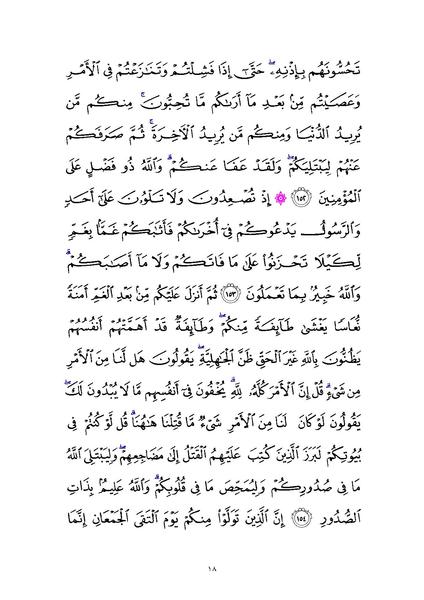 تَحُسُّونَهُم بِإِذۡنِهِۦۖ حَتَّىٰٓ إِذَا فَشِلۡتُمۡ وَتَنَٰزَعۡتُمۡ فِي ٱلۡأَمۡرِ
وَعَصَيۡتُم مِّنۢ بَعۡدِ مَآ أَرَىٰكُم مَّا تُحِبُّونَۚ مِنكُم مَّن
يُرِيدُ ٱلدُّنۡيَا وَمِنكُم مَّن يُرِيدُ ٱلۡأٓخِرَةَۚ ثُمَّ صَرَفَكُمۡ
عَنۡهُمۡ لِيَبۡتَلِيَكُمۡۖ وَلَقَدۡ عَفَا عَنكُمۡۗ وَٱللَّهُ ذُو فَضۡلٍ عَلَى
ٱلۡمُؤۡمِنِينَ ١٥٢ ۞ إِذۡ تُصۡعِدُونَ وَلَا تَلۡوُۥنَ عَلَىٰٓ أَحَدٖ
وَٱلرَّسُولُ يَدۡعُوكُمۡ فِيٓ أُخۡرَىٰكُمۡ فَأَثَٰبَكُمۡ غَمَّۢا بِغَمّٖ
لِّكَيۡلَا تَحۡزَنُواْ عَلَىٰ مَا فَاتَكُمۡ وَلَا مَآ أَصَٰبَكُمۡۗ
وَٱللَّهُ خَبِيرُۢ بِمَا تَعۡمَلُونَ ١٥٣ ثُمَّ أَنزَلَ عَلَيۡكُم مِّنۢ بَعۡدِ ٱلۡغَمِّ أَمَنَةٗ
نُّعَاسٗا يَغۡشَىٰ طَآئِفَةٗ مِّنكُمۡۖ وَطَآئِفَةٞ قَدۡ أَهَمَّتۡهُمۡ أَنفُسُهُمۡ
يَظُنُّونَ بِٱللَّهِ غَيۡرَ ٱلۡحَقِّ ظَنَّ ٱلۡجَٰهِلِيَّةِۖ يَقُولُونَ هَل لَّنَا مِنَ ٱلۡأَمۡرِ
مِن شَيۡءٖۗ قُلۡ إِنَّ ٱلۡأَمۡرَ كُلَّهُۥ لِلَّهِۗ يُخۡفُونَ فِيٓ أَنفُسِهِم مَّا لَا يُبۡدُونَ لَكَۖ
يَقُولُونَ لَوۡ كَانَ لَنَا مِنَ ٱلۡأَمۡرِ شَيۡءٞ مَّا قُتِلۡنَا هَٰهُنَاۗ قُل لَّوۡ كُنتُمۡ فِي
بُيُوتِكُمۡ لَبَرَزَ ٱلَّذِينَ كُتِبَ عَلَيۡهِمُ ٱلۡقَتۡلُ إِلَىٰ مَضَاجِعِهِمۡۖ وَلِيَبۡتَلِيَ ٱللَّهُ
مَا فِي صُدُورِكُمۡ وَلِيُمَحِّصَ مَا فِي قُلُوبِكُمۡۚ وَٱللَّهُ عَلِيمُۢ بِذَاتِ
ٱلصُّدُورِ ١٥٤ إِنَّ ٱلَّذِينَ تَوَلَّوۡاْ مِنكُمۡ يَوۡمَ ٱلۡتَقَى ٱلۡجَمۡعَانِ إِنَّمَا
١٨